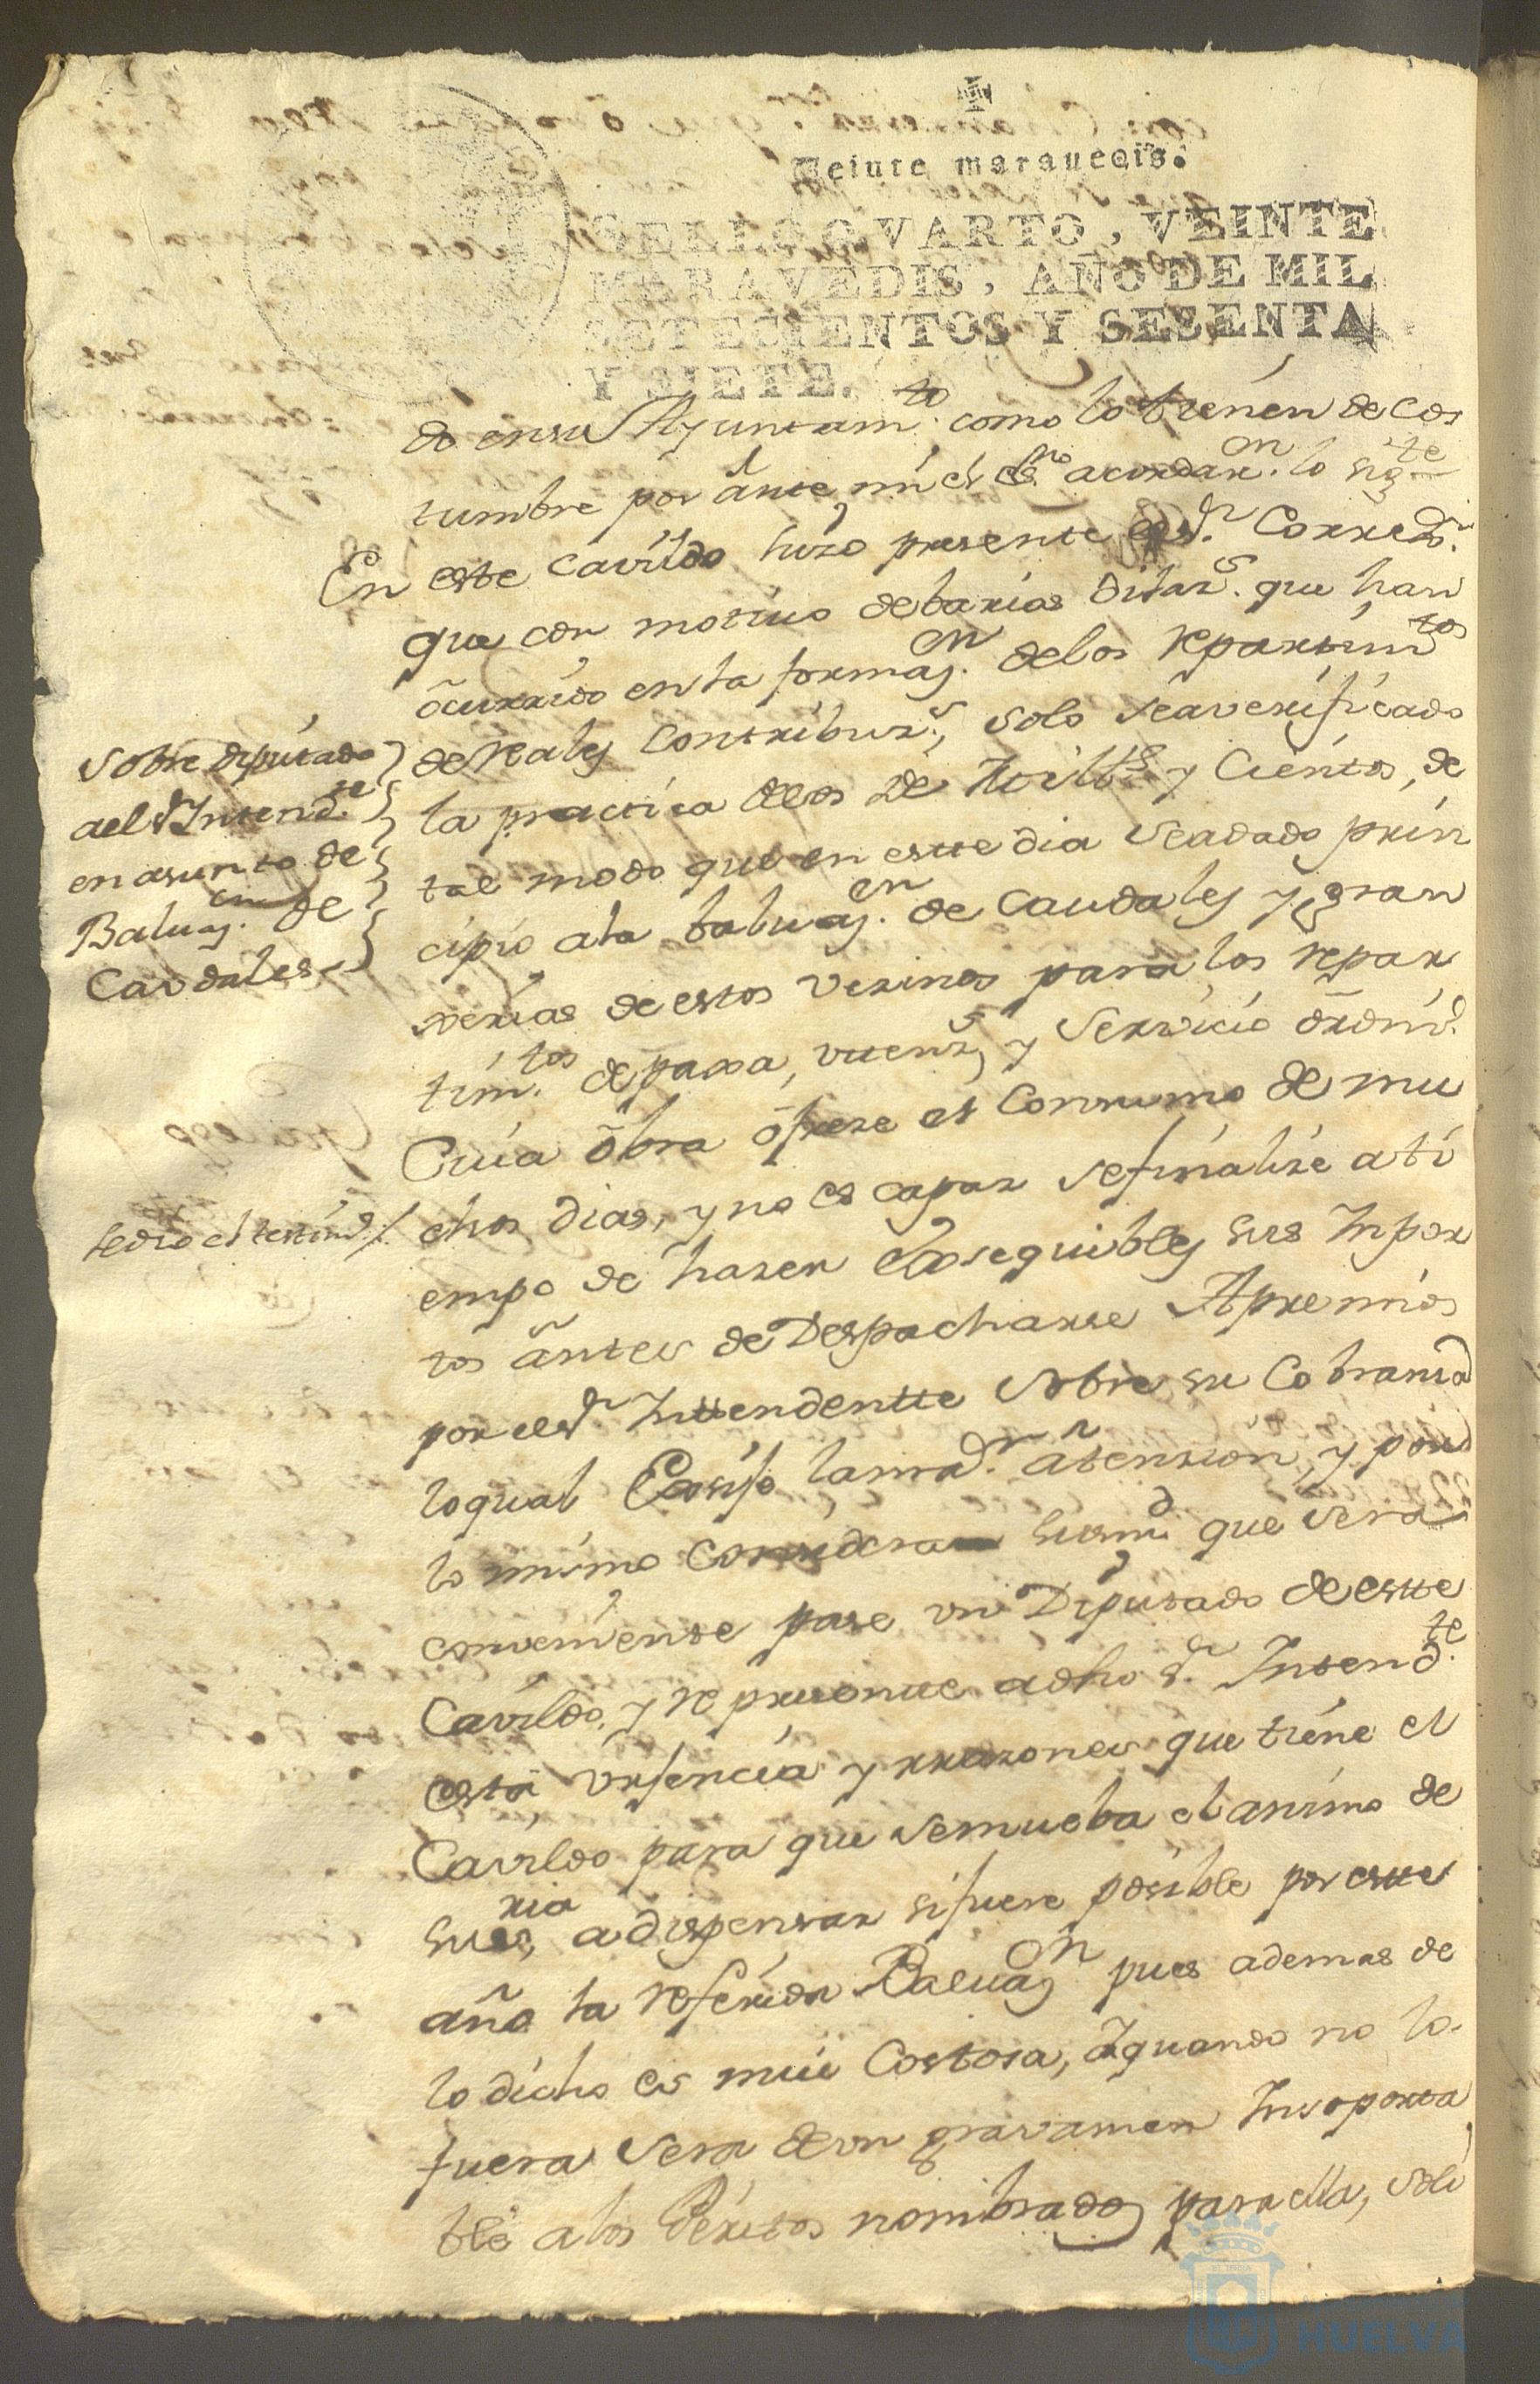 Veinte marauedis.
SELLO QVARTO, VEINTE
MARAVEDIS, AÑO DE MIL
SETECIENTOS Y SESENTA
Y SIETE.
do en su Ayuntamto. como lo tienen de cos
tumbre por ante mi el Esno. acordaron. lo sigte
En este cavildo hizo presente el Sr. Corredor.
que con motivo de barias Dilazs. que han
ocurrido en la formazn. de los repartimtos
de reales Contribuzs, solo sea verificado
la practica de los de Millns y Cientos, de
tal modo que en este dia sea dado prin
cipio ala baluazn. de Caudales y gran
xerias de estos Vezinos para los repar
timtos. de paxa, utenzs, y Servicio ordino.
Cuia obra ofreze el Consumo de mu
chos dias, y no es capaz se finalize a ti
empo de hazer Exsequibles sus Inpor
tos antes de Despacharse Apremios
por el Sr Inttendentte sobre su Cobranza
lo qual Exsije la mar. atenzion, y por
lo mismo considera su md. que sera
conveniente pase un Diputado de estte
Cavildo, y represente a dho Sr. Intendte.
esta urjencia y rrazones que tiene el
Cavildo para que se mueba el animo de
su sria, a dispensar si fuere posible por este
año la referida Baluazn pues ademas de
lo dicho es mui Costosa, Y quando no lo
fuera sera de un gravamen Insoporta
ble a los Peritos nombrados para ella, soli
Sobre diputado
al Sr Intendte.
en asunto de
Baluazn. de
Caudales
se dio el testimo.
HUELVA